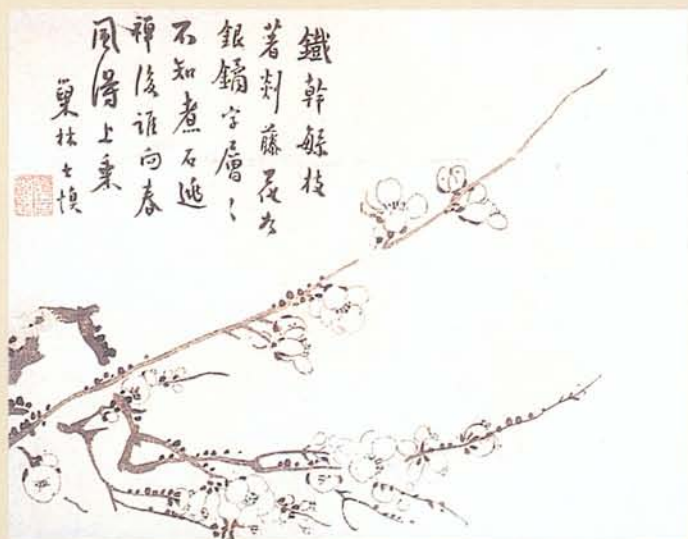 鐵幹繇枝
著剡藤花為
銀鏑字層〻
不知煮石逃
禪後誰向春
風得上乘
巢林士慎